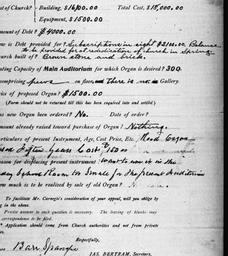 st of Church? Building, $16,500.00 Total Cost, $18,000.00.
Equipment, $1500.00
mount of Debt? $4000.00
is Debt provided for? Subscriptions in sight $2100.00. Balance
to be provided for
built of? Brown stone and brick.
ating Capacity of Main Auditorium for which Organ is desired? 300.
omprising pews on floor, and There is no in Gallery.
rice of proposed Organ? $1500.00
(Form should not be returned till this has been inquired into and settled)
as new Organ been ordered? No. Date of order?
mount already raised toward purchase of Organ? Nothing.
articulars of Present Instrument, Age, Cost Price, Etc. Reed Organ
used fifteen years Cost $
eason for displacing present instrument? want to use it in the
day School Room too small for the present Auditorium
ow much is to be realized by sale of old Organ?
To facilitate Mr. Carnegie's consideration of your appeal, will you oblige by
ng in the above.
Precise answer to each question is necessary. The leaving of blanks may
correspondence to be filed.
Application should come from Church authorities and not from private
Respectfully,
JAS. BERTRAM, Secretary.